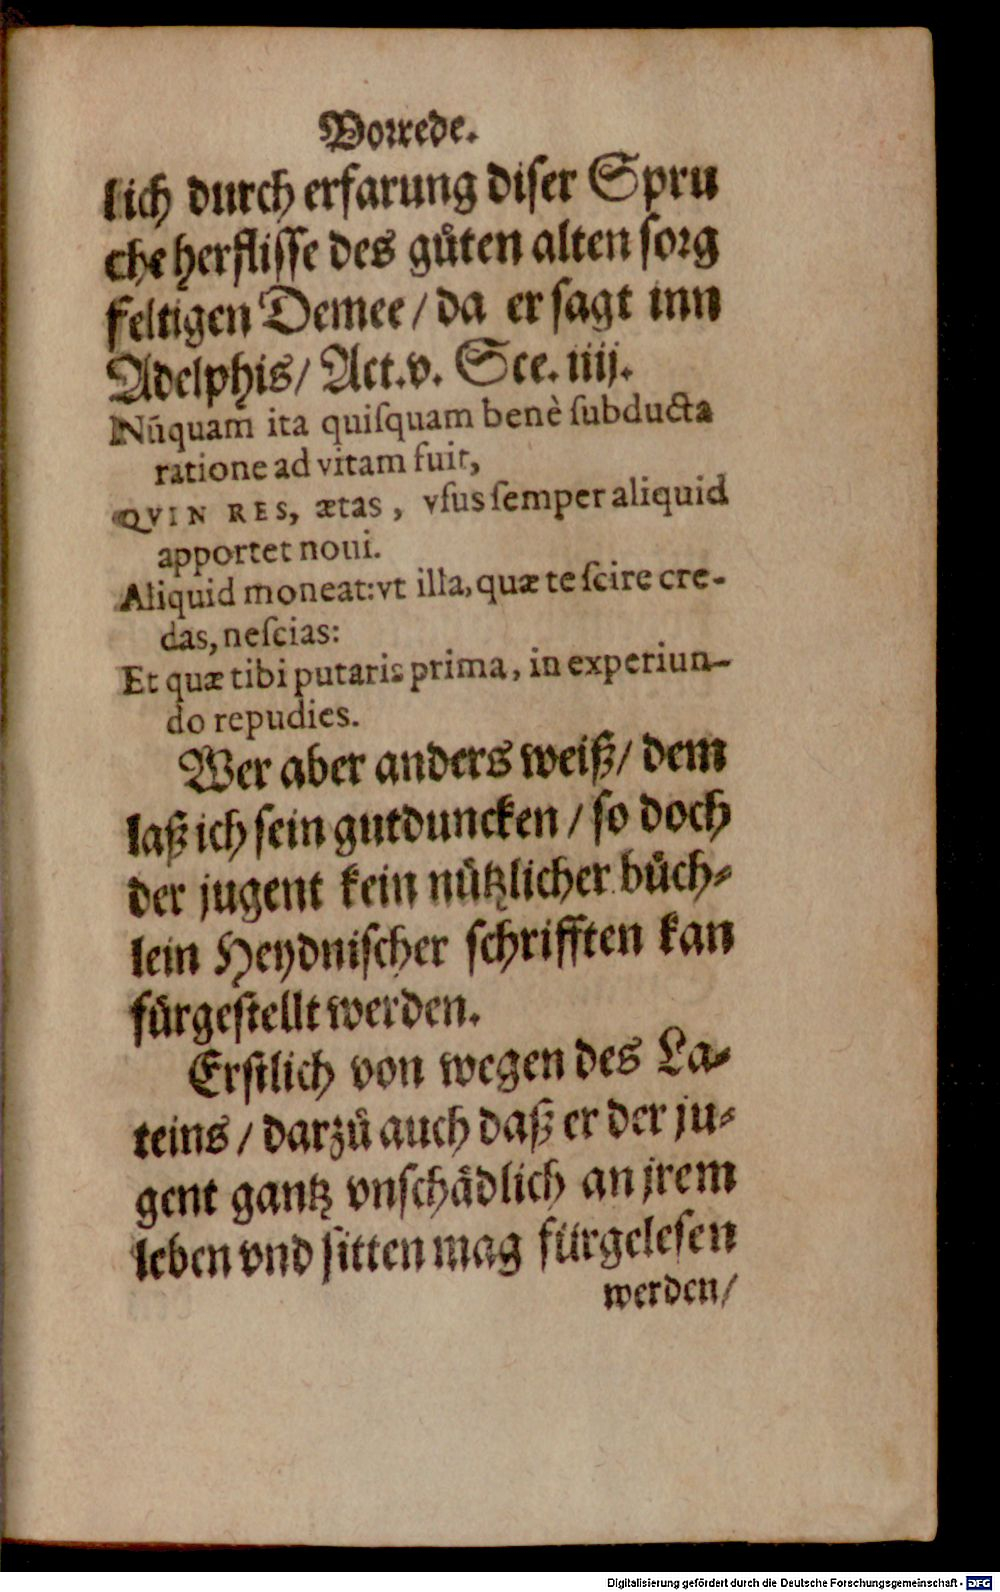 Vorrede.
lich durch erfarung diser Spru
che herflisse des gůten alten sorg
feltigen Demee / da er sagt inn
Adelphis / Act. v. Sce. iiij.
Nũquam ita quiſquam benè ſubducta
ratione ad vitam fuit,
QVIN RES, ætas, vſus ſemper aliquid
apportet noui.
Aliquid moneat: vt illa, quæ te ſcire cre-
das, neſcias:
Et quæ tibi putaris prima, in experiun-
do repudies.
Wer aber anders weiß / dem
laß ich sein gutduncken / so doch
der jugent kein nützlicher büch-
lein Heydnischer schrifften kan
fürgestellt werden.
Erstlich von wegen des La-
teins / darzů auch daß er der ju-
gent gantz vnschädlich an jrem
leben vnd sitten mag fürgelesen
werden /
Digitalisierung gefördert durch die Deutsche Forschungsgemeinschaft - DFG